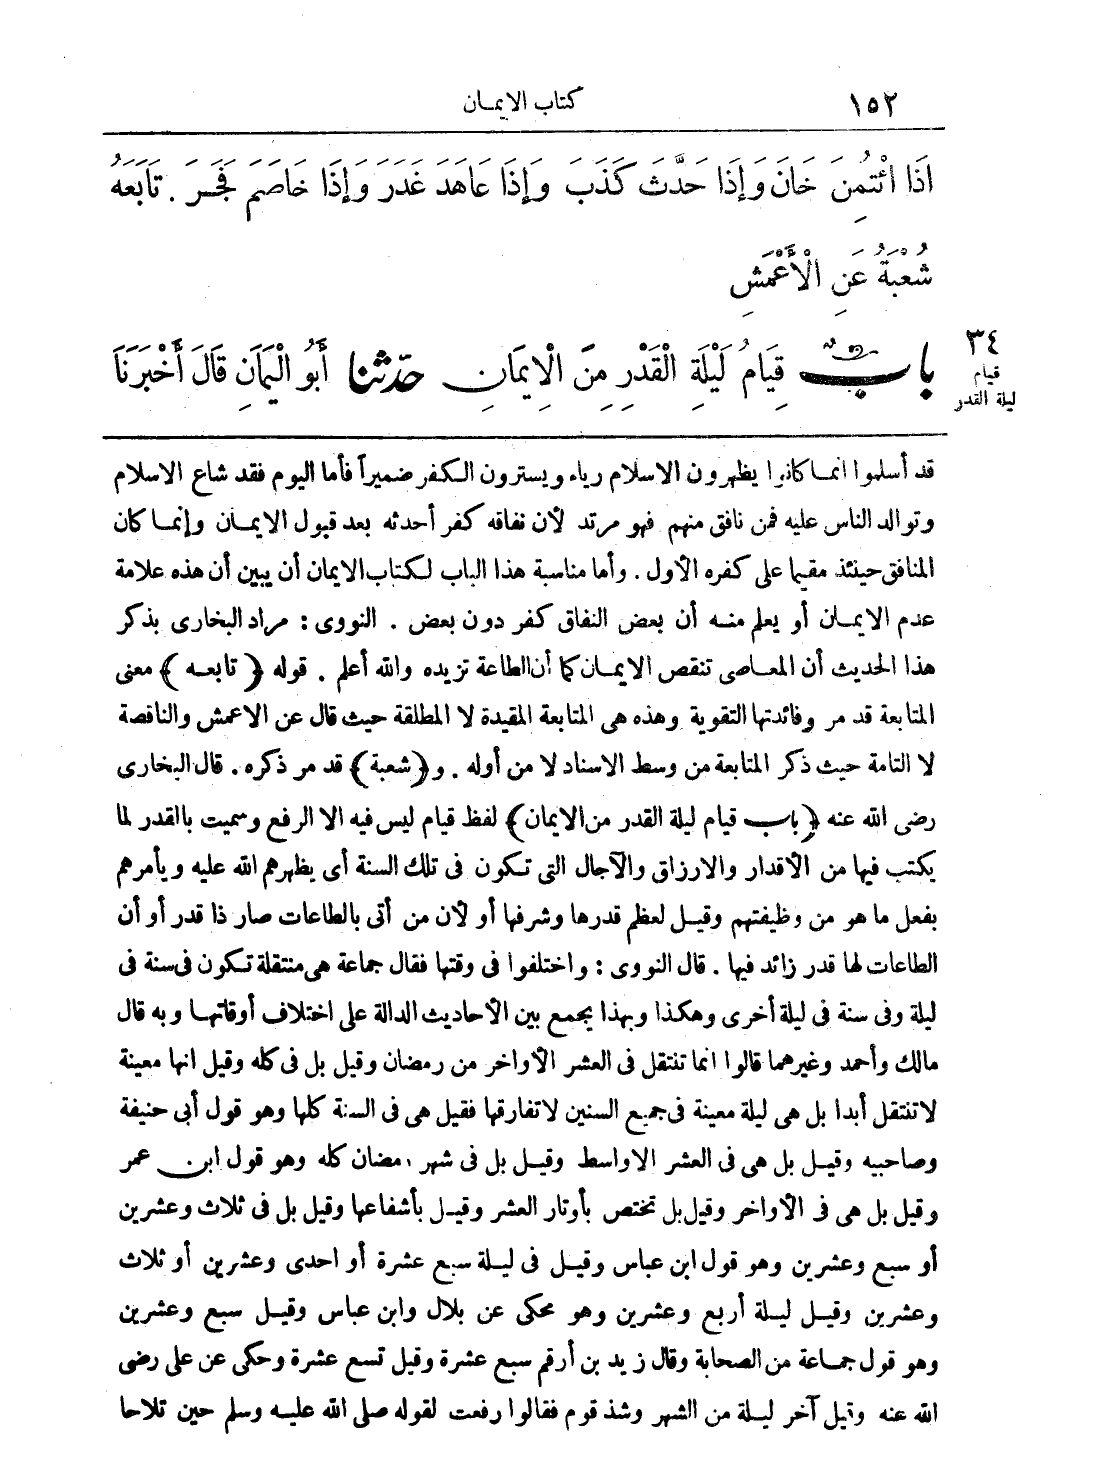 ١٥٢
كتاب الايمان
اذَا ائْتُمِنَ خَانَ وَإِذَا حَدَّثَ كَذَبَ وَإِذَا عَاهَدَ غَدَرَ وَإِذَا خَاصَمَ فَجَرَ . تَابَعَهُ
شُعْبَةُ عَنِ الْأَعْمَشِ
٣٤
قيام
ليلة القدر
بابٌ قِيَامُ لَيْلَةِ الْقَدْرِ مِنَ الْإِيمَانِ حدّثنا أَبُو الْيَمَانِ قَالَ أَخْبَرَنَا
قد أسلموا انما كانوا يظهرون الاسلام رياء ويسترون الكفر ضميراً فأما اليوم فقد شاع الاسلام
وتوالد الناس عليه فمن نافق منهم فهو مرتد لأن نفاقه كفر أحدثه بعد قبول الايمان وإنما كان
المنافق حينئذ مقيما على كفره الأول . وأما مناسبة هذا الباب لكتاب الايمان أن يبين أن هذه علامة
عدم الايمان أو يعلم منه أن بعض النفاق كفر دون بعض . النووى : مراد البخارى بذكر
هذا الحديث أن المعاصى تنقص الايمان كما أن الطاعة تزيده والله أعلم . قوله ﴿ تابعه ﴾ معنى
المتابعة قد مر وفائدتها التقوية وهذه هى المتابعة المقيدة لا المطلقة حيث قال عن الاعمش والناقصة
لا التامة حيث ذكر المتابعة من وسط الاسناد لا من أوله . و﴿شعبة﴾ قد مر ذكره . قال البخارى
رضى الله عنه ﴿باب قيام ليلة القدر من الايمان﴾ لفظ قيام ليس فيه الا الرفع وسميت بالقدر لما
يكتب فيها من الأقدار والارزاق والآجال التى تكون فى تلك السنة أى يظهرهم الله عليه ويأمرهم
بفعل ما هو من وظيفتهم وقيل لعظم قدرها وشرفها أو لأن من أتى بالطاعات صار ذا قدر أو أن
الطاعات لها قدر زائد فيها . قال النووى : واختلفوا فى وقتها فقال جماعة هى منتقلة تكون فى سنة فى
ليلة وفى سنة فى ليلة أخرى وهكذا وبهذا يجمع بين الأحاديث الدالة على اختلاف أوقاتها وبه قال
مالك وأحمد وغيرهما قالوا انما تنتقل فى العشر الأواخر من رمضان وقيل بل فى كله وقيل انها معينة
لا تنتقل أبدا بل هى ليلة معينة فى جميع السنين لا تفارقها فقيل هى فى السنة كلها وهو قول أبى حنيفة
وصاحبيه وقيل بل هى فى العشر الاواسط وقيل بل فى شهر رمضان كله وهو قول ابن عمر
وقيل بل هى فى الأواخر وقيل بل تختص بأوتار العشر وقيل بأشفاعها وقيل بل فى ثلاث وعشرين
أو سبع وعشرين وهو قول ابن عباس وقيل فى ليلة سبع عشرة أو احدى وعشرين أو ثلاث
وعشرين وقيل ليلة أربع وعشرين وهو محكى عن بلال وابن عباس وقيل سبع وعشرين
وهو قول جماعة من الصحابة وقال زيد بن أرقم سبع عشرة وقيل تسع عشرة وحكى عن على رضى
الله عنه وقيل آخر ليلة من الشهر وشذ قوم فقالوا رفعت لقوله صلى الله عليه وسلم حين تلاحا